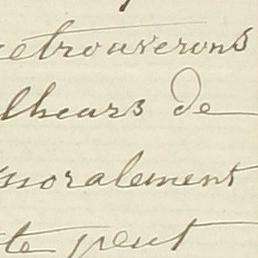 retrouverons
lheurs de
moralement
te peut